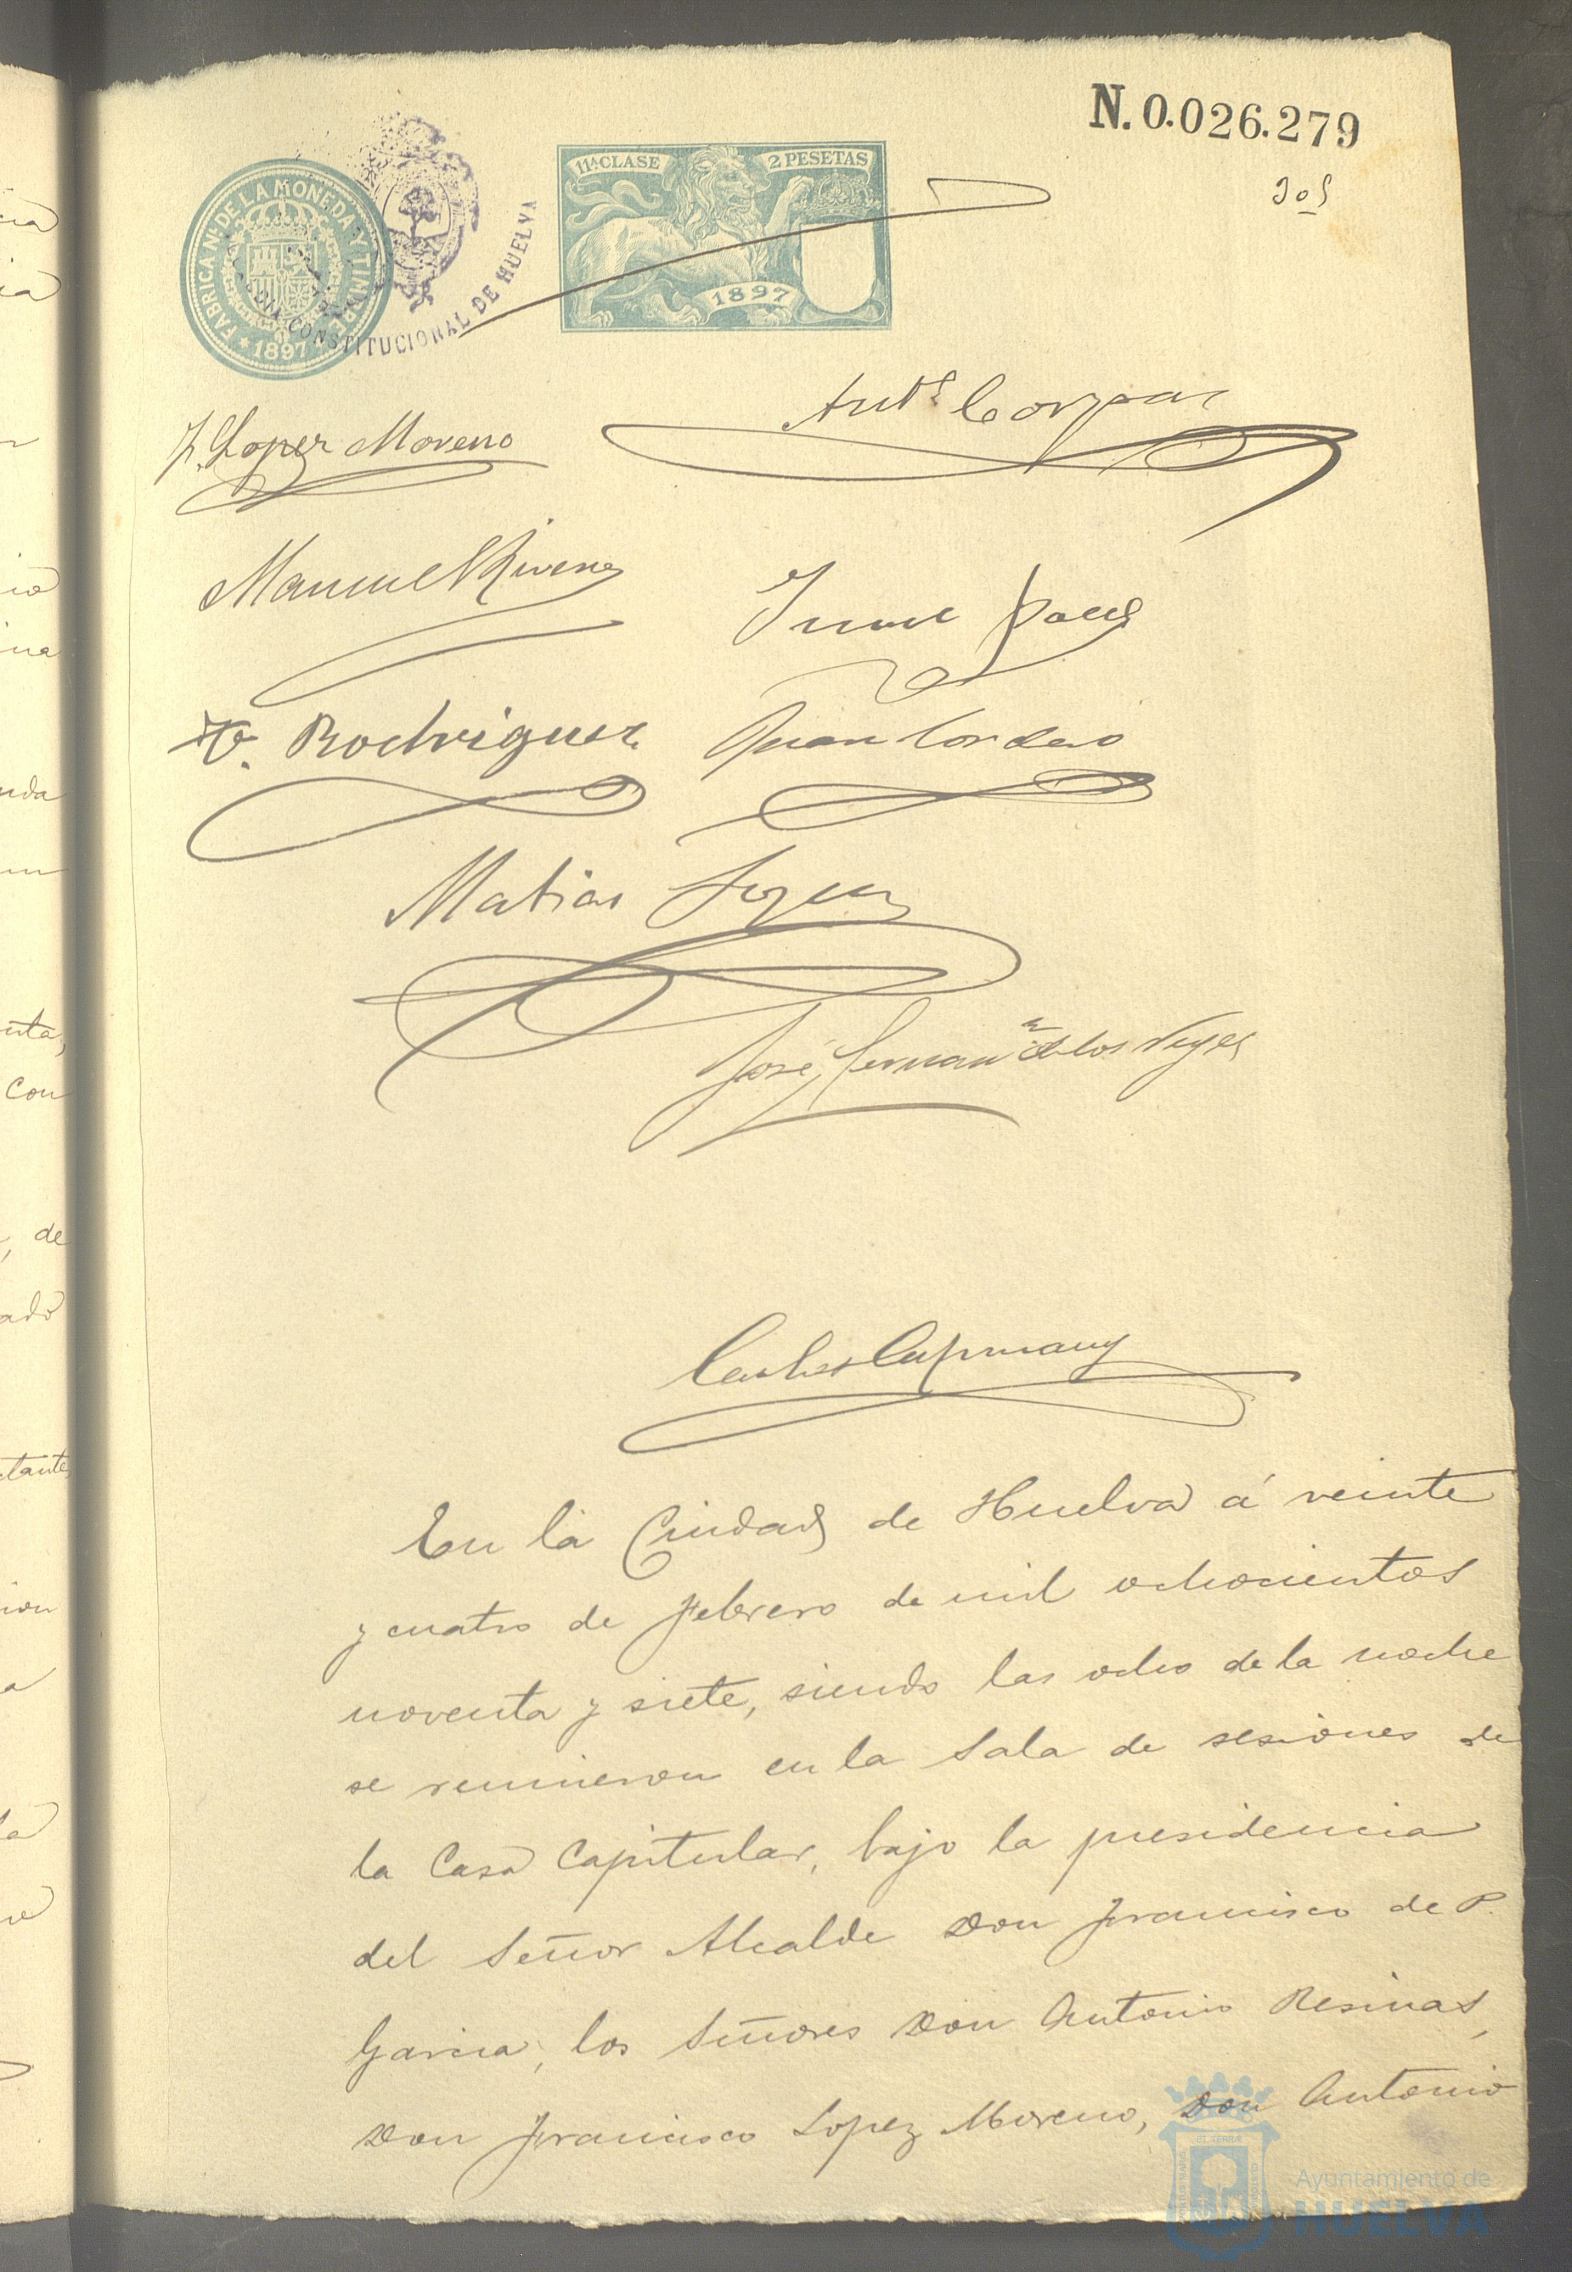 N. 0.026.279
11ª CLASE 2 PESETAS
1897
FABRICA Nº DE LA MONEDA Y TIMBRE
* 1897
CONSTITUCIONAL DE HUELVA
F. Lopez Moreno
Manuel Rivera
Rodriguez
Juan Cordero
Matias
José Hernanz de los Reyes
Carlos Capmany
En la Ciudad de Huelva á veinte
y cuatro de Febrero de mil ochocientos
noventa y siete, siendo las ocho de la noche
se reunieron en la Sala de sesiones de
la Casa Capitular, bajo la presidencia
del Señor Alcalde Don Francisco de P.
Garcia, los Señores Don Antonio Resinas,
Don Francisco Lopez Moreno, Don Antonio
Ayuntamiento de
HUELVA